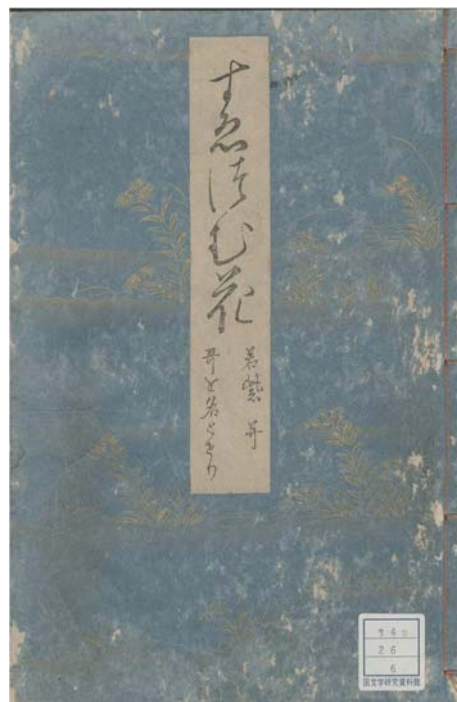 すゑつむ花
若紫并
哥を名とせり
サ4
26
6
国文学研究資料館